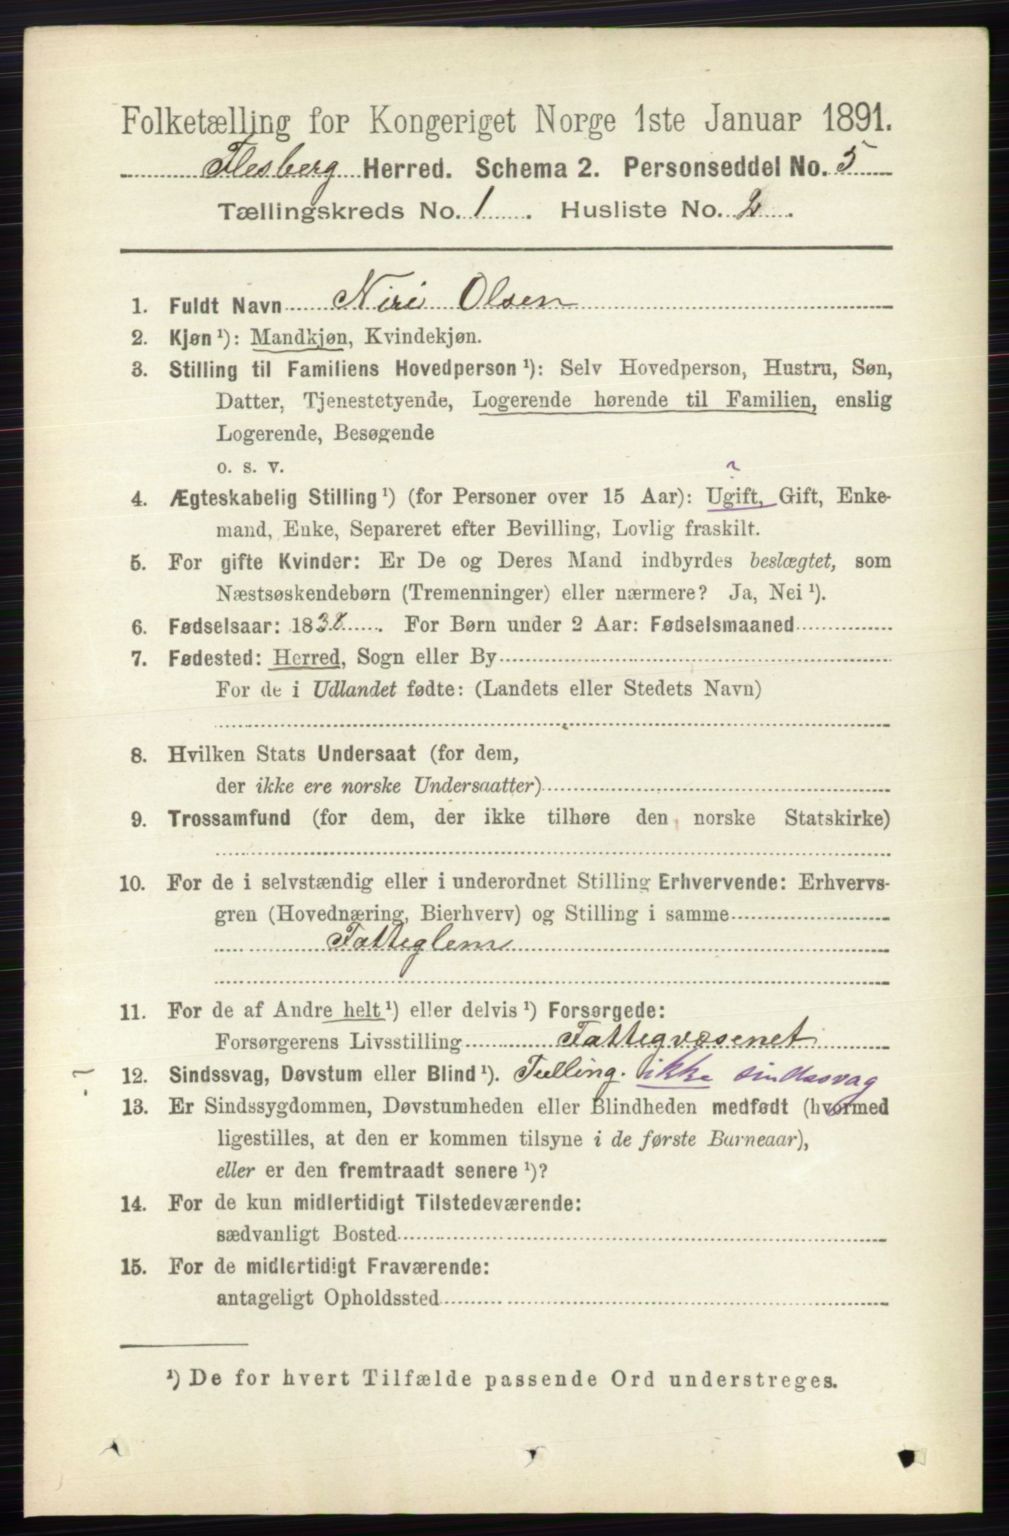 Folketælling for Kongeriget Norge 1ste Januar 1891.
Flesberg Herred. Schema 2. Personseddel No. 5
Tællingskreds No. 1. Husliste No. 2.
1. Fuldt Navn Niri Olsen
2. Kjøn ¹): Mandkjøn, Kvindekjøn.
3. Stilling til Familiens Hovedperson ¹): Selv Hovedperson, Hustru, Søn,
Datter, Tjenestetyende, Logerende hørende til Familien, enslig
Logerende, Besøgende
o. s. v.
4. Ægteskabelig Stilling ¹) (for Personer over 15 Aar): Ugift, Gift, Enke-
mand, Enke, Separeret efter Bevilling, Lovlig fraskilt.
5. For gifte Kvinder: Er De og Deres Mand indbyrdes beslægtet, som
Næstsøskendebørn (Tremenninger) eller nærmere? Ja, Nei ¹).
6. Fødselsaar: 1838. For Børn under 2 Aar: Fødselsmaaned
7. Fødested: Herred, Sogn eller By
For de i Udlandet fødte: (Landets eller Stedets Navn)
8. Hvilken Stats Undersaat (for dem,
der ikke ere norske Undersaatter)
9. Trossamfund (for dem, der ikke tilhøre den norske Statskirke)
10. For de i selvstændig eller i underordnet Stilling Erhvervende: Erhvervs-
gren (Hovednæring, Bierhverv) og Stilling i samme
Fatteglem
11. For de af Andre helt ¹) eller delvis ¹) Forsørgede:
Forsørgerens Livsstilling Fattegvæsenet
12. Sindssvag, Døvstum eller Blind ¹). Tulling. ikke sindssvag
13. Er Sindssygdommen, Døvstumheden eller Blindheden medfødt (hvormed
ligestilles, at den er kommen tilsyne i de første Barneaar),
eller er den fremtraadt senere ¹)?
14. For de kun midlertidigt Tilstedeværende:
sædvanligt Bosted
15. For de midlertidigt Fraværende:
antageligt Opholdssted
¹) De for hvert Tilfælde passende Ord understreges.